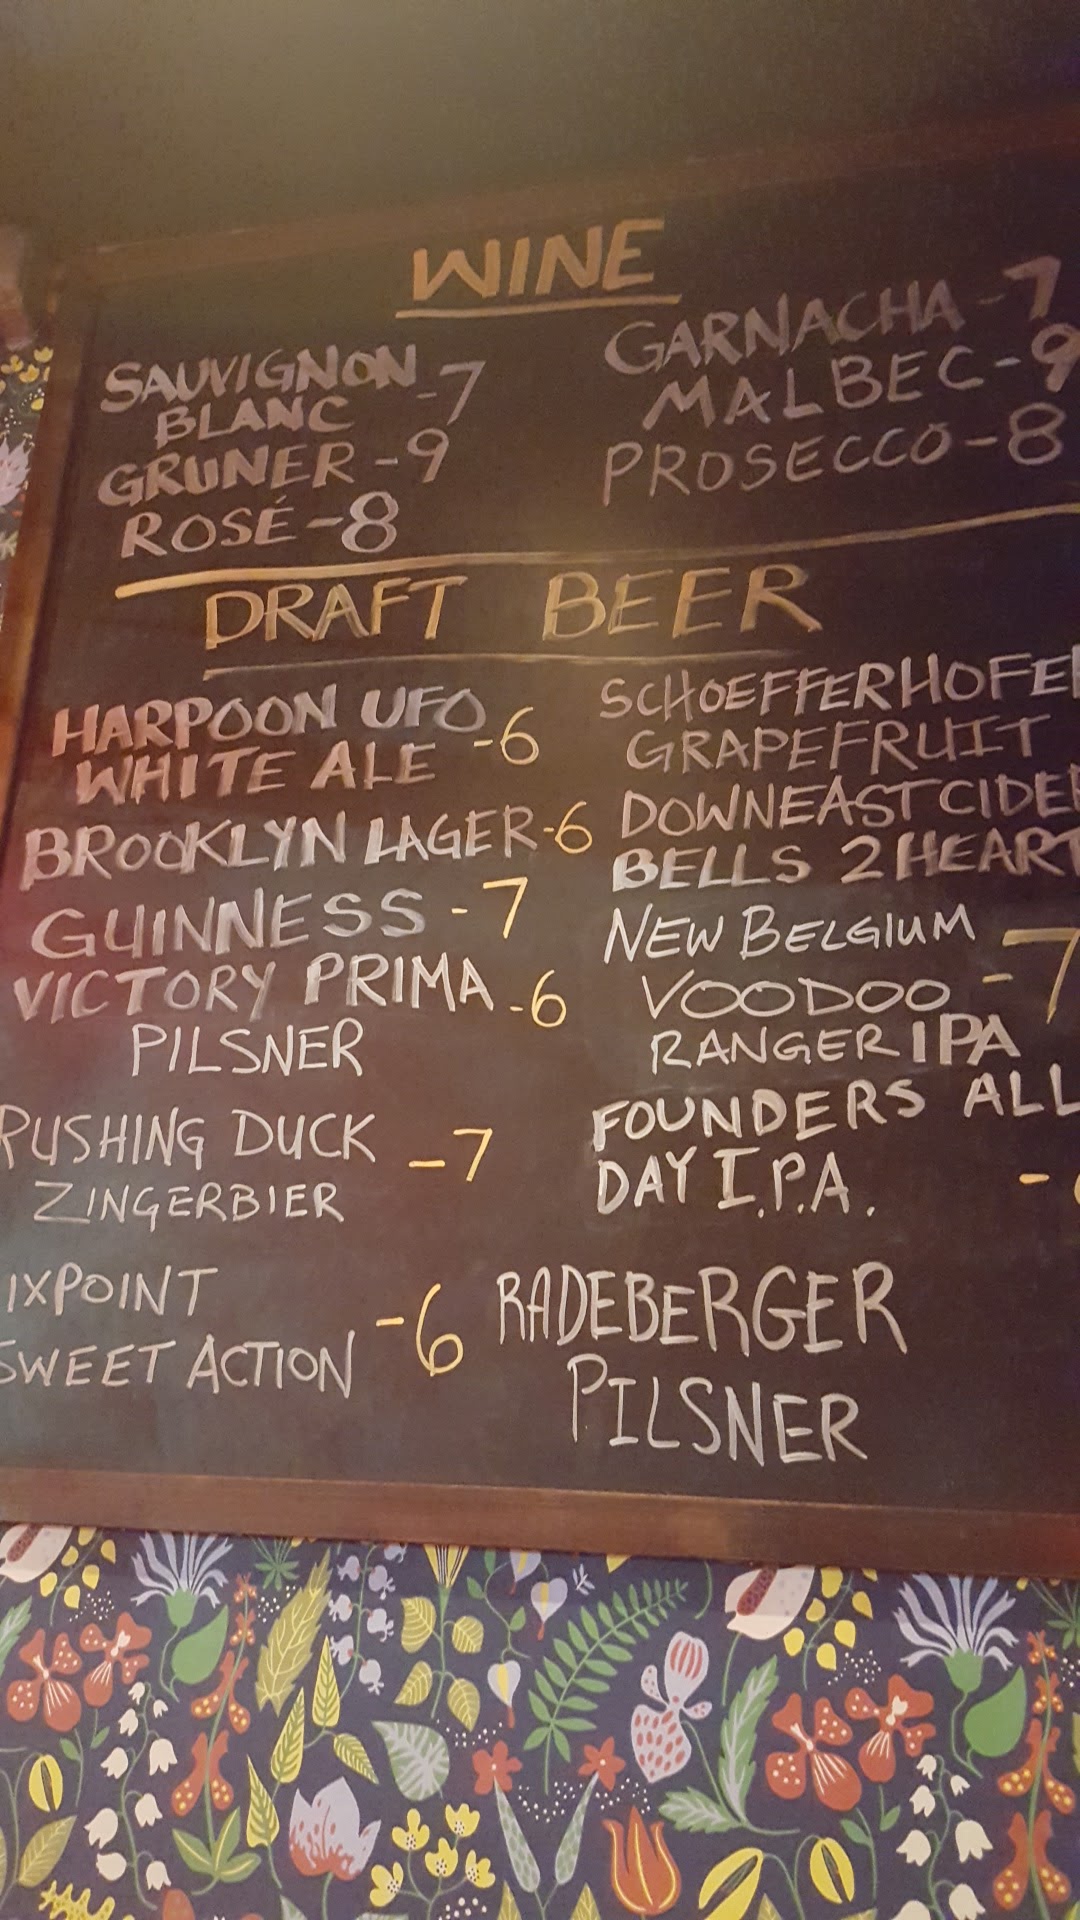 WINE
SAUVIGNON
BLANC -7
GRUNER -9
ROSÉ -8
GARNACHA -7
MALBEC -9
PROSECCO -8
DRAFT BEER
HARPOON UFO
WHITE ALE -6
BROOKLYN LAGER -6
GUINNESS -7
VICTORY PRIMA -6
PILSNER
RUSHING DUCK -7
ZINGERBIER
IXPOINT
SWEET ACTION -6
SCHOEFFERHOFER
GRAPEFRUIT
DOWNEAST CIDER
BELLS 2HEART
NEW BELGIUM
VOODOO -7
RANGER IPA
FOUNDERS ALL
DAY I.P.A. -
RADEBERGER
PILSNER